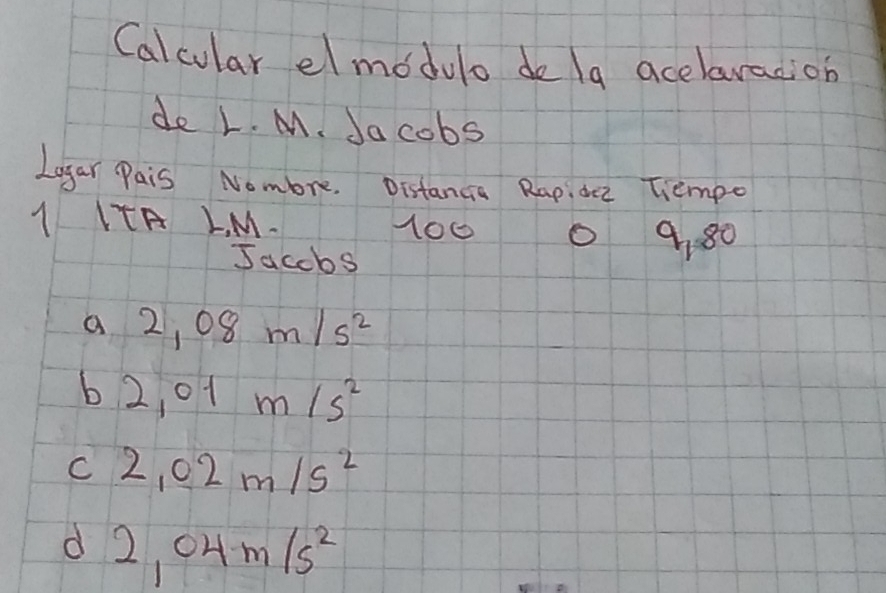 Calcular el módulo de la acelaración
de L. M. Jacobs
Lugar Pais Nombre. Distancia Rapidez Tiempo
1 ITA L.M. 100 0 9,80
Jacobs
a 2,08 m/s²
b 2,01 m/s²
c 2,02 m/s²
d 2,04 m/s²